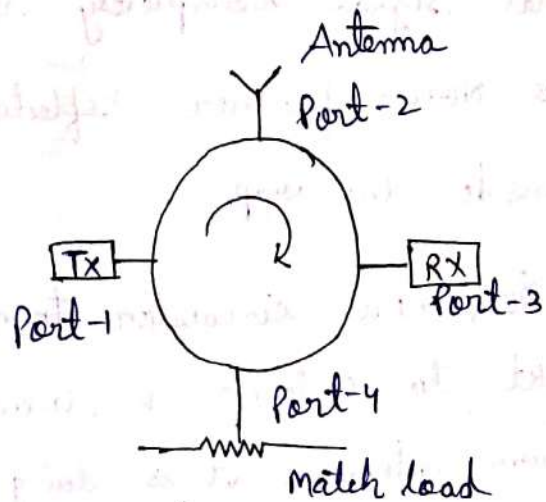 Antenna
Port-2
TX
RX
Port-1
Port-3
Port-4
Match load